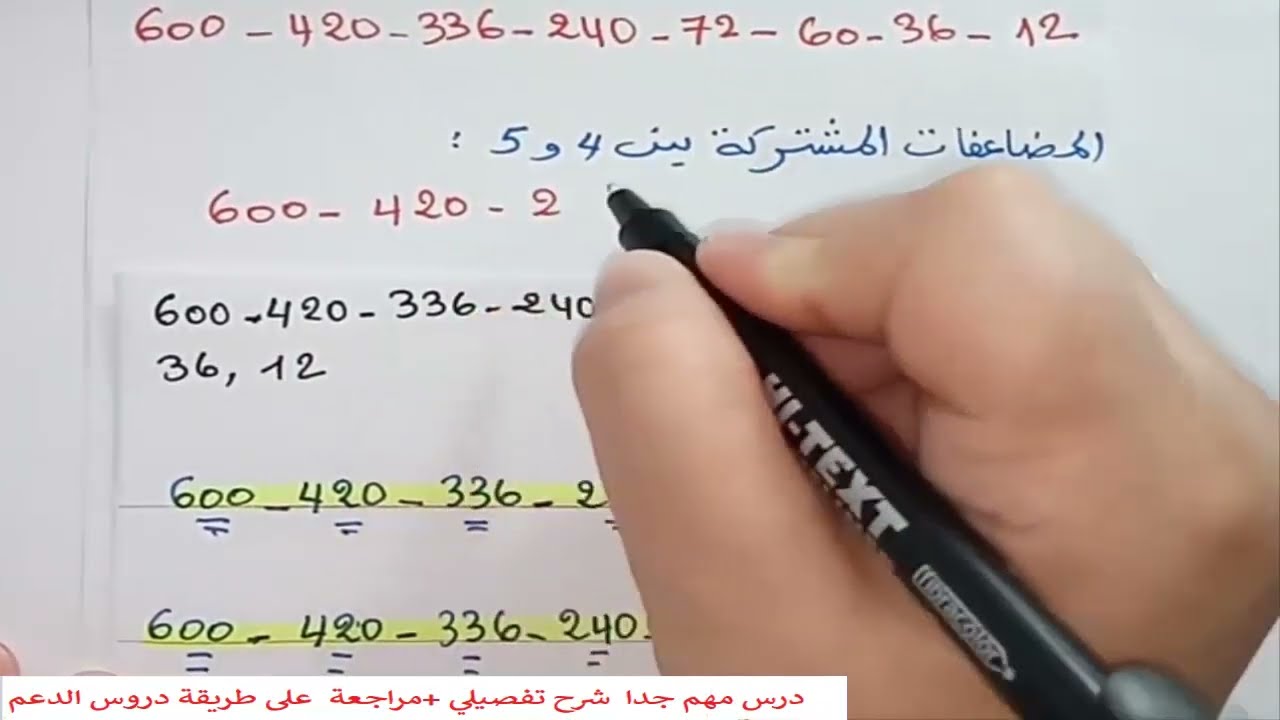 600 - 420 - 336 - 240 - 72 - 60 - 36 - 12
المضاعفات المشتركة بين 4 و 5 :
600 - 420 - 2
600 - 420 - 336 - 240
36, 12
600 - 420 - 336 - 2
600 - 420 - 336 - 240 -
HI-TEXT
fibracolor
درس مهم جدا شرح تفصيلي +مراجعة على طريقة دروس الدعم